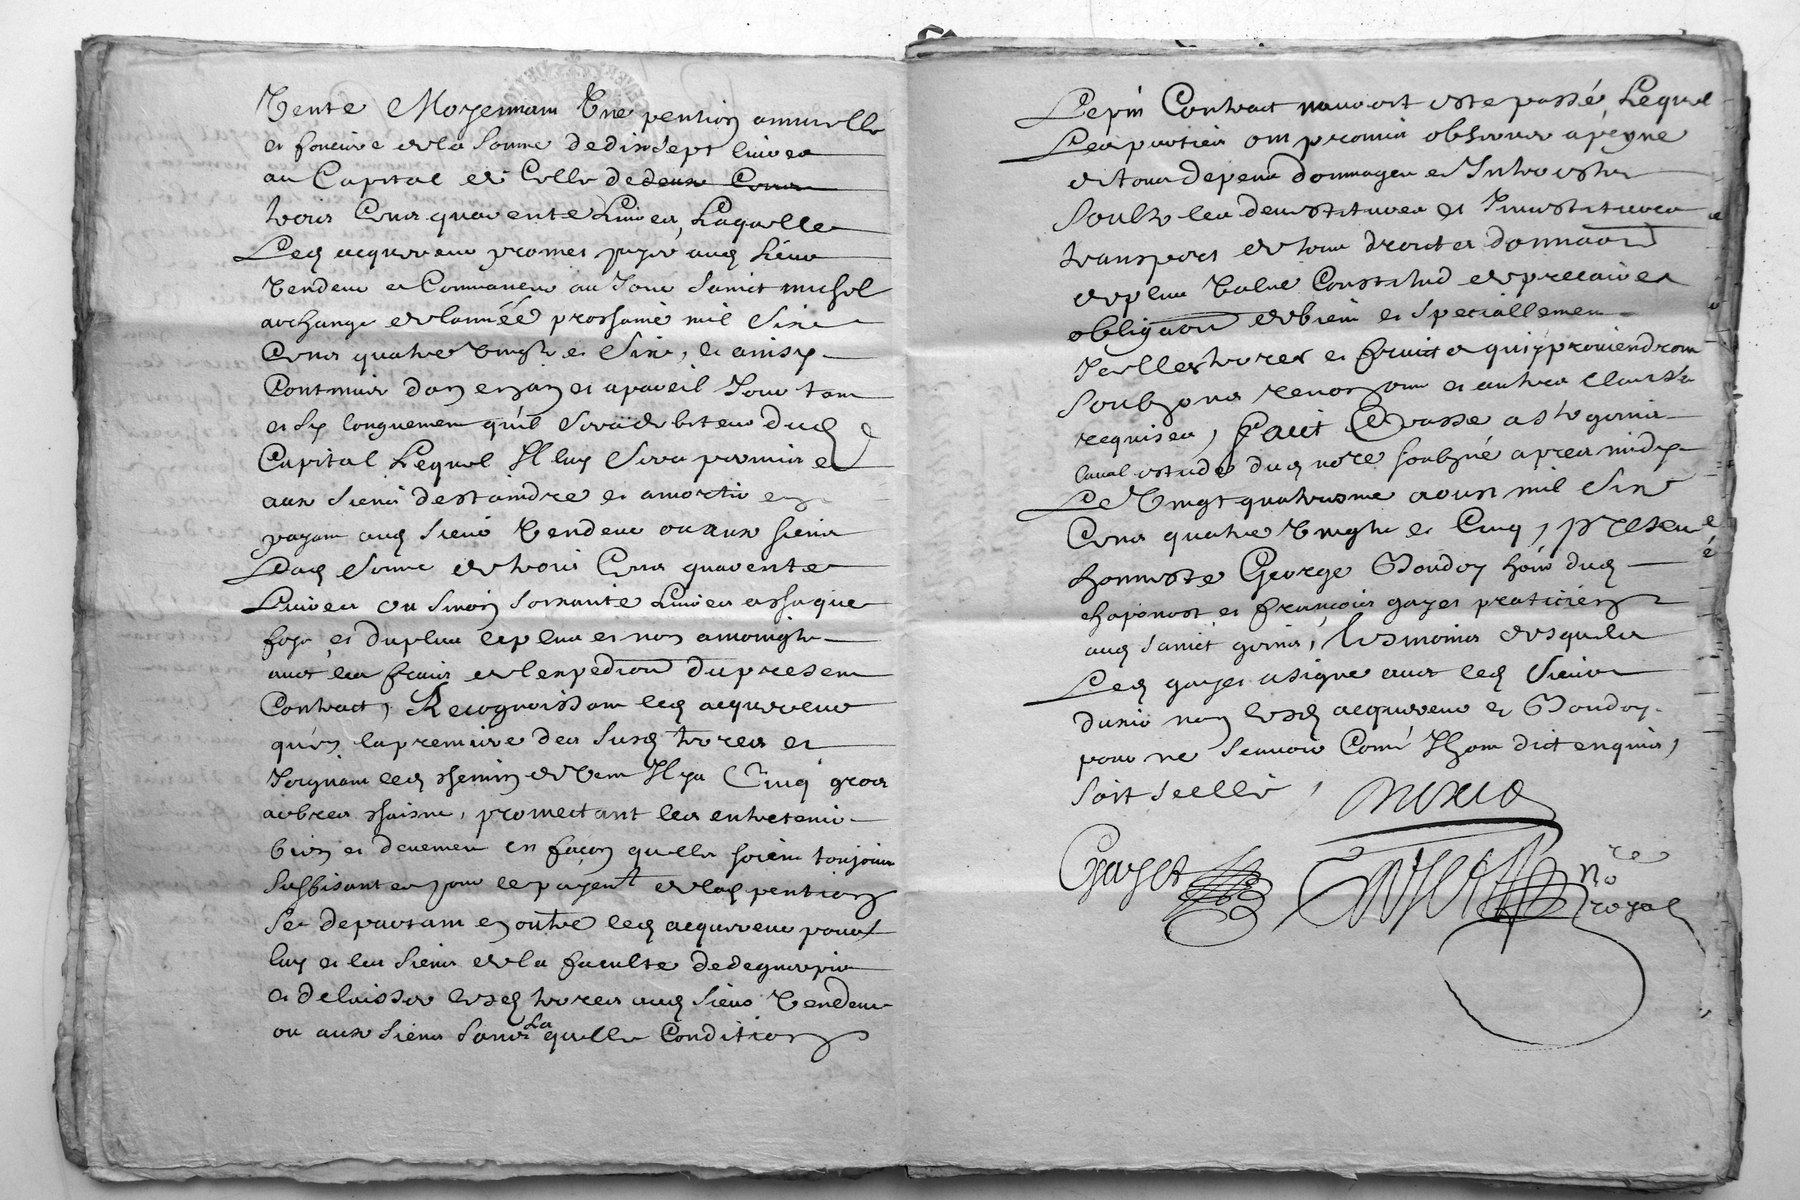 Vente Moyennant Une pention annuelle
et fonciere de la somme de dix sept livres
au Capital de Celle de deux Cens
trois Cens quarente Livres, Laquelle
Led acquereur promet payer aud sieur
Vendeur et Commancer au Jour Sainct michel
archange de lannée prochaine mil Six
Cens quatre vingts et Six, et ainsy
Continuer dan en an et a pareil Jour tant
et sy longuement quil Sera debiteur dud
Capital Lequel Il luy Sera permis et
aux siens destaindre et amortir en
payant aud sieur Vendeur ou aux siens
Lad Somme de trois Cens quarente
Livres ou sinon soixante Livres a chaque
foys et du plus le plus et non a moings
avec les frais de lexpedion du present
Contract, Recognoissant led acquereur
quen la premiere des susd terres et
Joignant led chemin de vent Il y a Cinq gros
arbres chaisne, promectant les entretenir
bien et deuement en façon quelle soient toujours
suffisantes pour le payent de lad pention
Se departant en oultre led acquereur pour
luy et les siens de la faculte de deguerpir
et delaisser lesd terres aud sieur Vendeur
ou aux siens sans La quelle Condition
Le pnt Contract nauroit este passé Lequel
Les parties ont promis observer a peyne
de tous depens dommages et Interestz
Soubz les demstitures et Inuestitures
transport de tous droictz donnaon
de plus value Constitud de precaire et
obligaon de biens et speciallement
Jcelles terres et fruictz quy proviendront
Soubz renon et autres clauses
requises, faict et passé a st genis
laval estude dud nore soubzné apres midy
Le Vingt quatriesme aoust mil Six
Cens quatre vingts et Cinq, presents
honneste George Boudoy hoste dud
chaponost et françois gayet praticien
aud sainct genis, tesmoins desquels
Led gayet a signe avec led sieur
non lesd acquereur et Boudoy
pour ne scavoir Comé Ilz ont dict enquis,
Soit scellé,
Gayet nore
royal